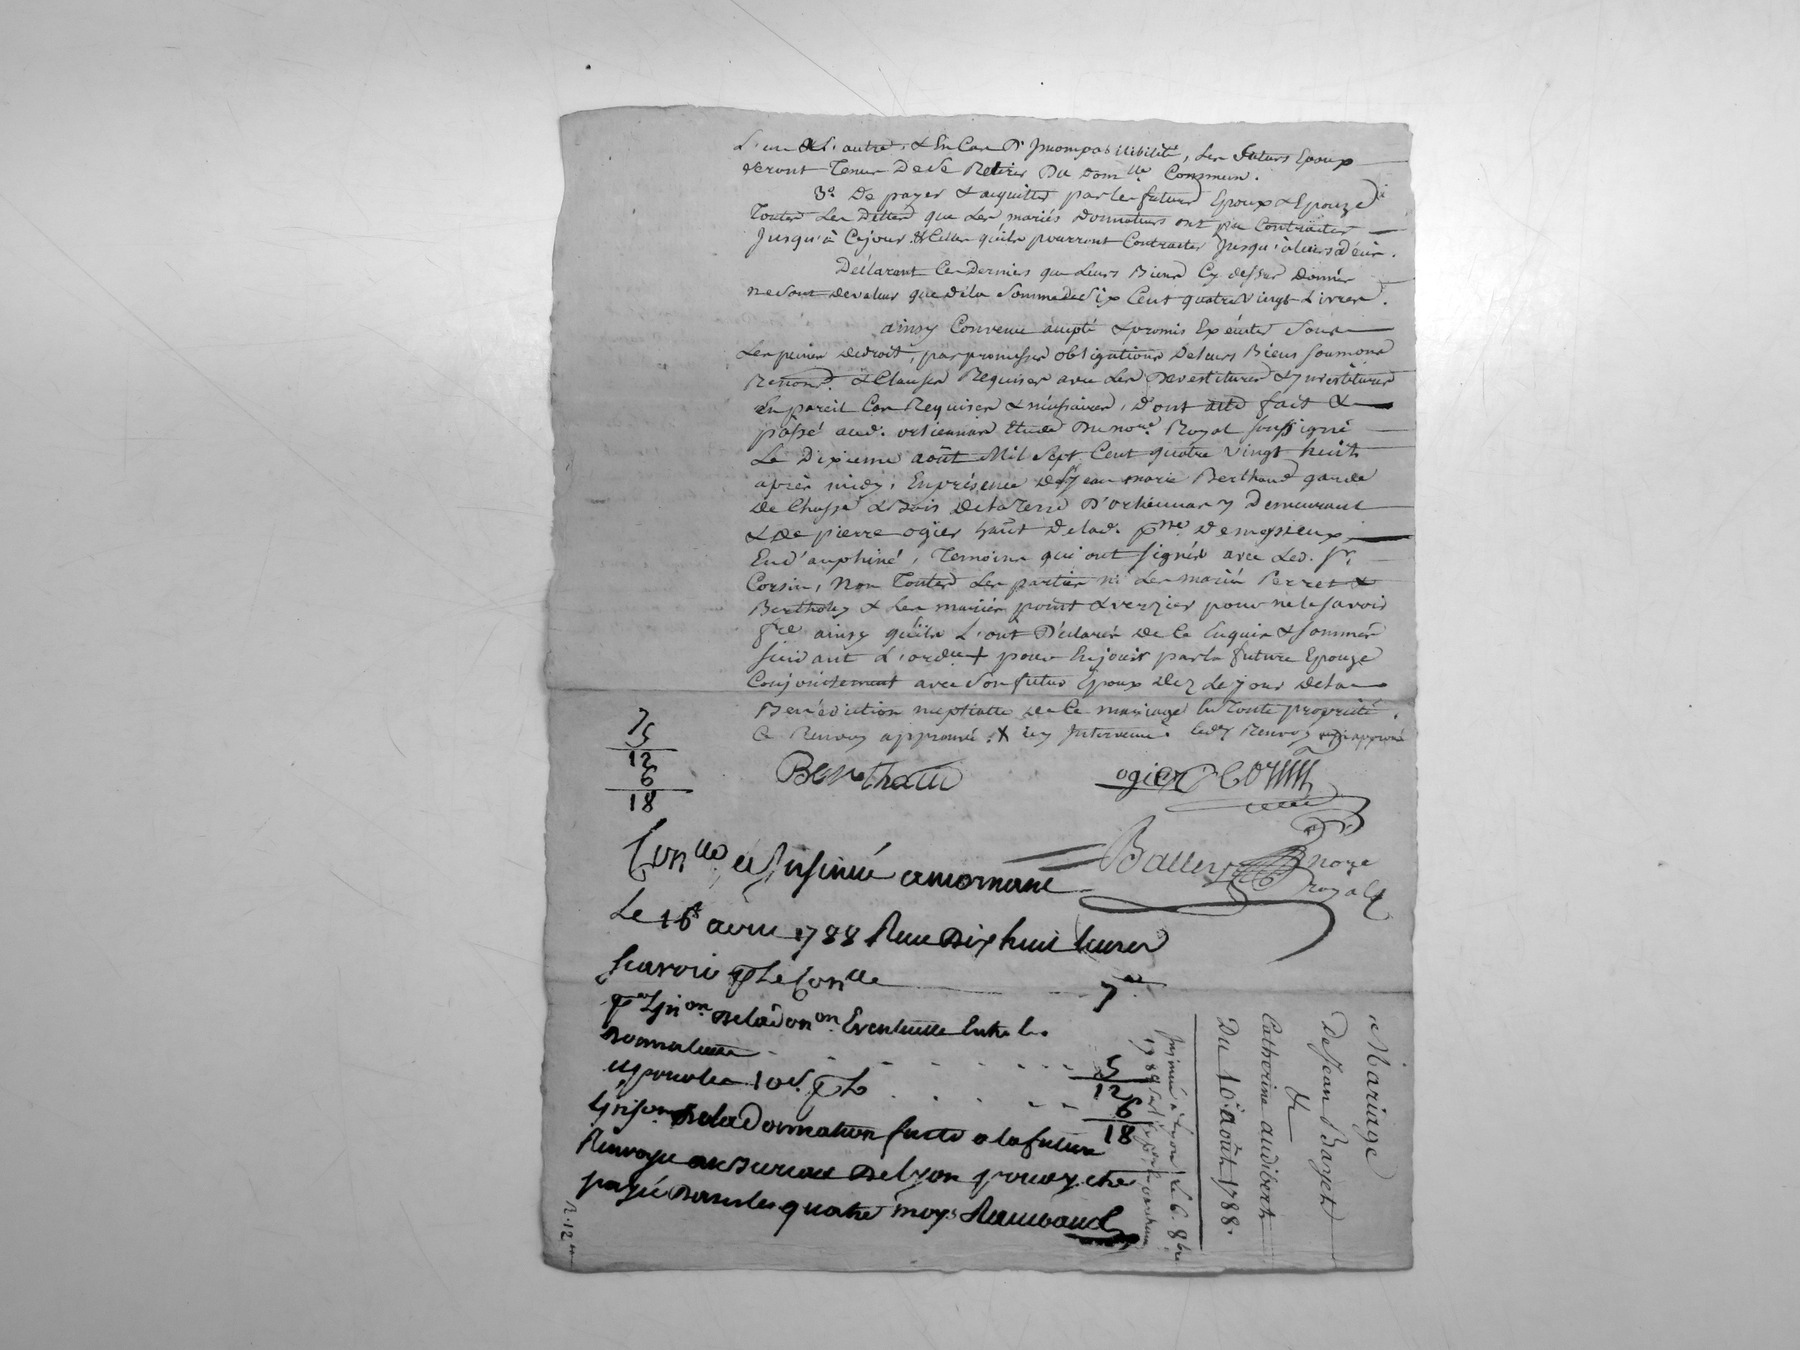 L'un & L'autre, & En Cas D'Incompatibilité, Les futurs Epoux
seront Tenus De se Retirer Du Dom.lle Commun.
3.° De payer & acquitter par les futurs Epoux & Epouze
Toutes Les Dettes que Les mariés Donnateurs ont pu Contracter
Jusqu'à Ce jour & Celles qu'ils pourront Contracter Jusqu'à leurs décès.
Déclarant Ces Derniers que Leurs Biens Cy dessus Donnés
ne sont de valeur que de la somme de Six Cent quatre Vingt Livres.
ainsy Convenu accepté & promis Exécuter sous
Les peines de droit, par promesses obligations De leurs Biens soumons
Renons. & Clauses Requises avec Les Devestitures & Investitures
En pareil Cas Requises & nécéssaires, Dont acte fait &
passé aud. ortiennas Etude Du not.re Royal soussigné
Le Dixieme août Mil Sept Cent quatre vingt huit
après midy, En présence de Sr. Jean marie Berthaud garde
De Chasse & Bois De la Terre D'ortiennas y Demeurant
& De pierre ogier De lad. De moysieux
En d'auphiné, Temoins qui ont signés avec Led. Sr.
Corsin, Non Toutes Les parties ni Les mariés Perret &
Bertholey & Les mariés point & verzier pour ne le savoir
f.re ainsy qu'ils L'ont Déclarés De Ce Enquis & Sommés
suivant L'ord.ce + pour En jouir par la future Epouze
Conjointement avec Son futur Epoux Dez Le jour De la
Benédiction nuptialle de Ce mariage En Toute propriété.
Ce Renvoy approuvé. X icy Intervenus. led. Renvoy aussi approuvé
7
5
12
6
18
Berthaud
ogier Corsin
Balley no.re
royal
Con.llé et Insinué a mornant
Le 16 août 1788 Reçu Dix huit livres
scavoir p.r Le Con.lle 7
p.r L'in.on De la Don.on Eventuelle Entre Les
5
12
10 s. p.r L. 6
18
De la Donnation faite a la future
Renvoye au Bureau De Lyon pour y etre
payée Dans les quatre moys Raimbaud
R. 12
Mariage
De Jean Bazet
&
Catherine audibert
Du 10.e août 1788.
Insinué à Lyon Le 6. 8.bre
1788